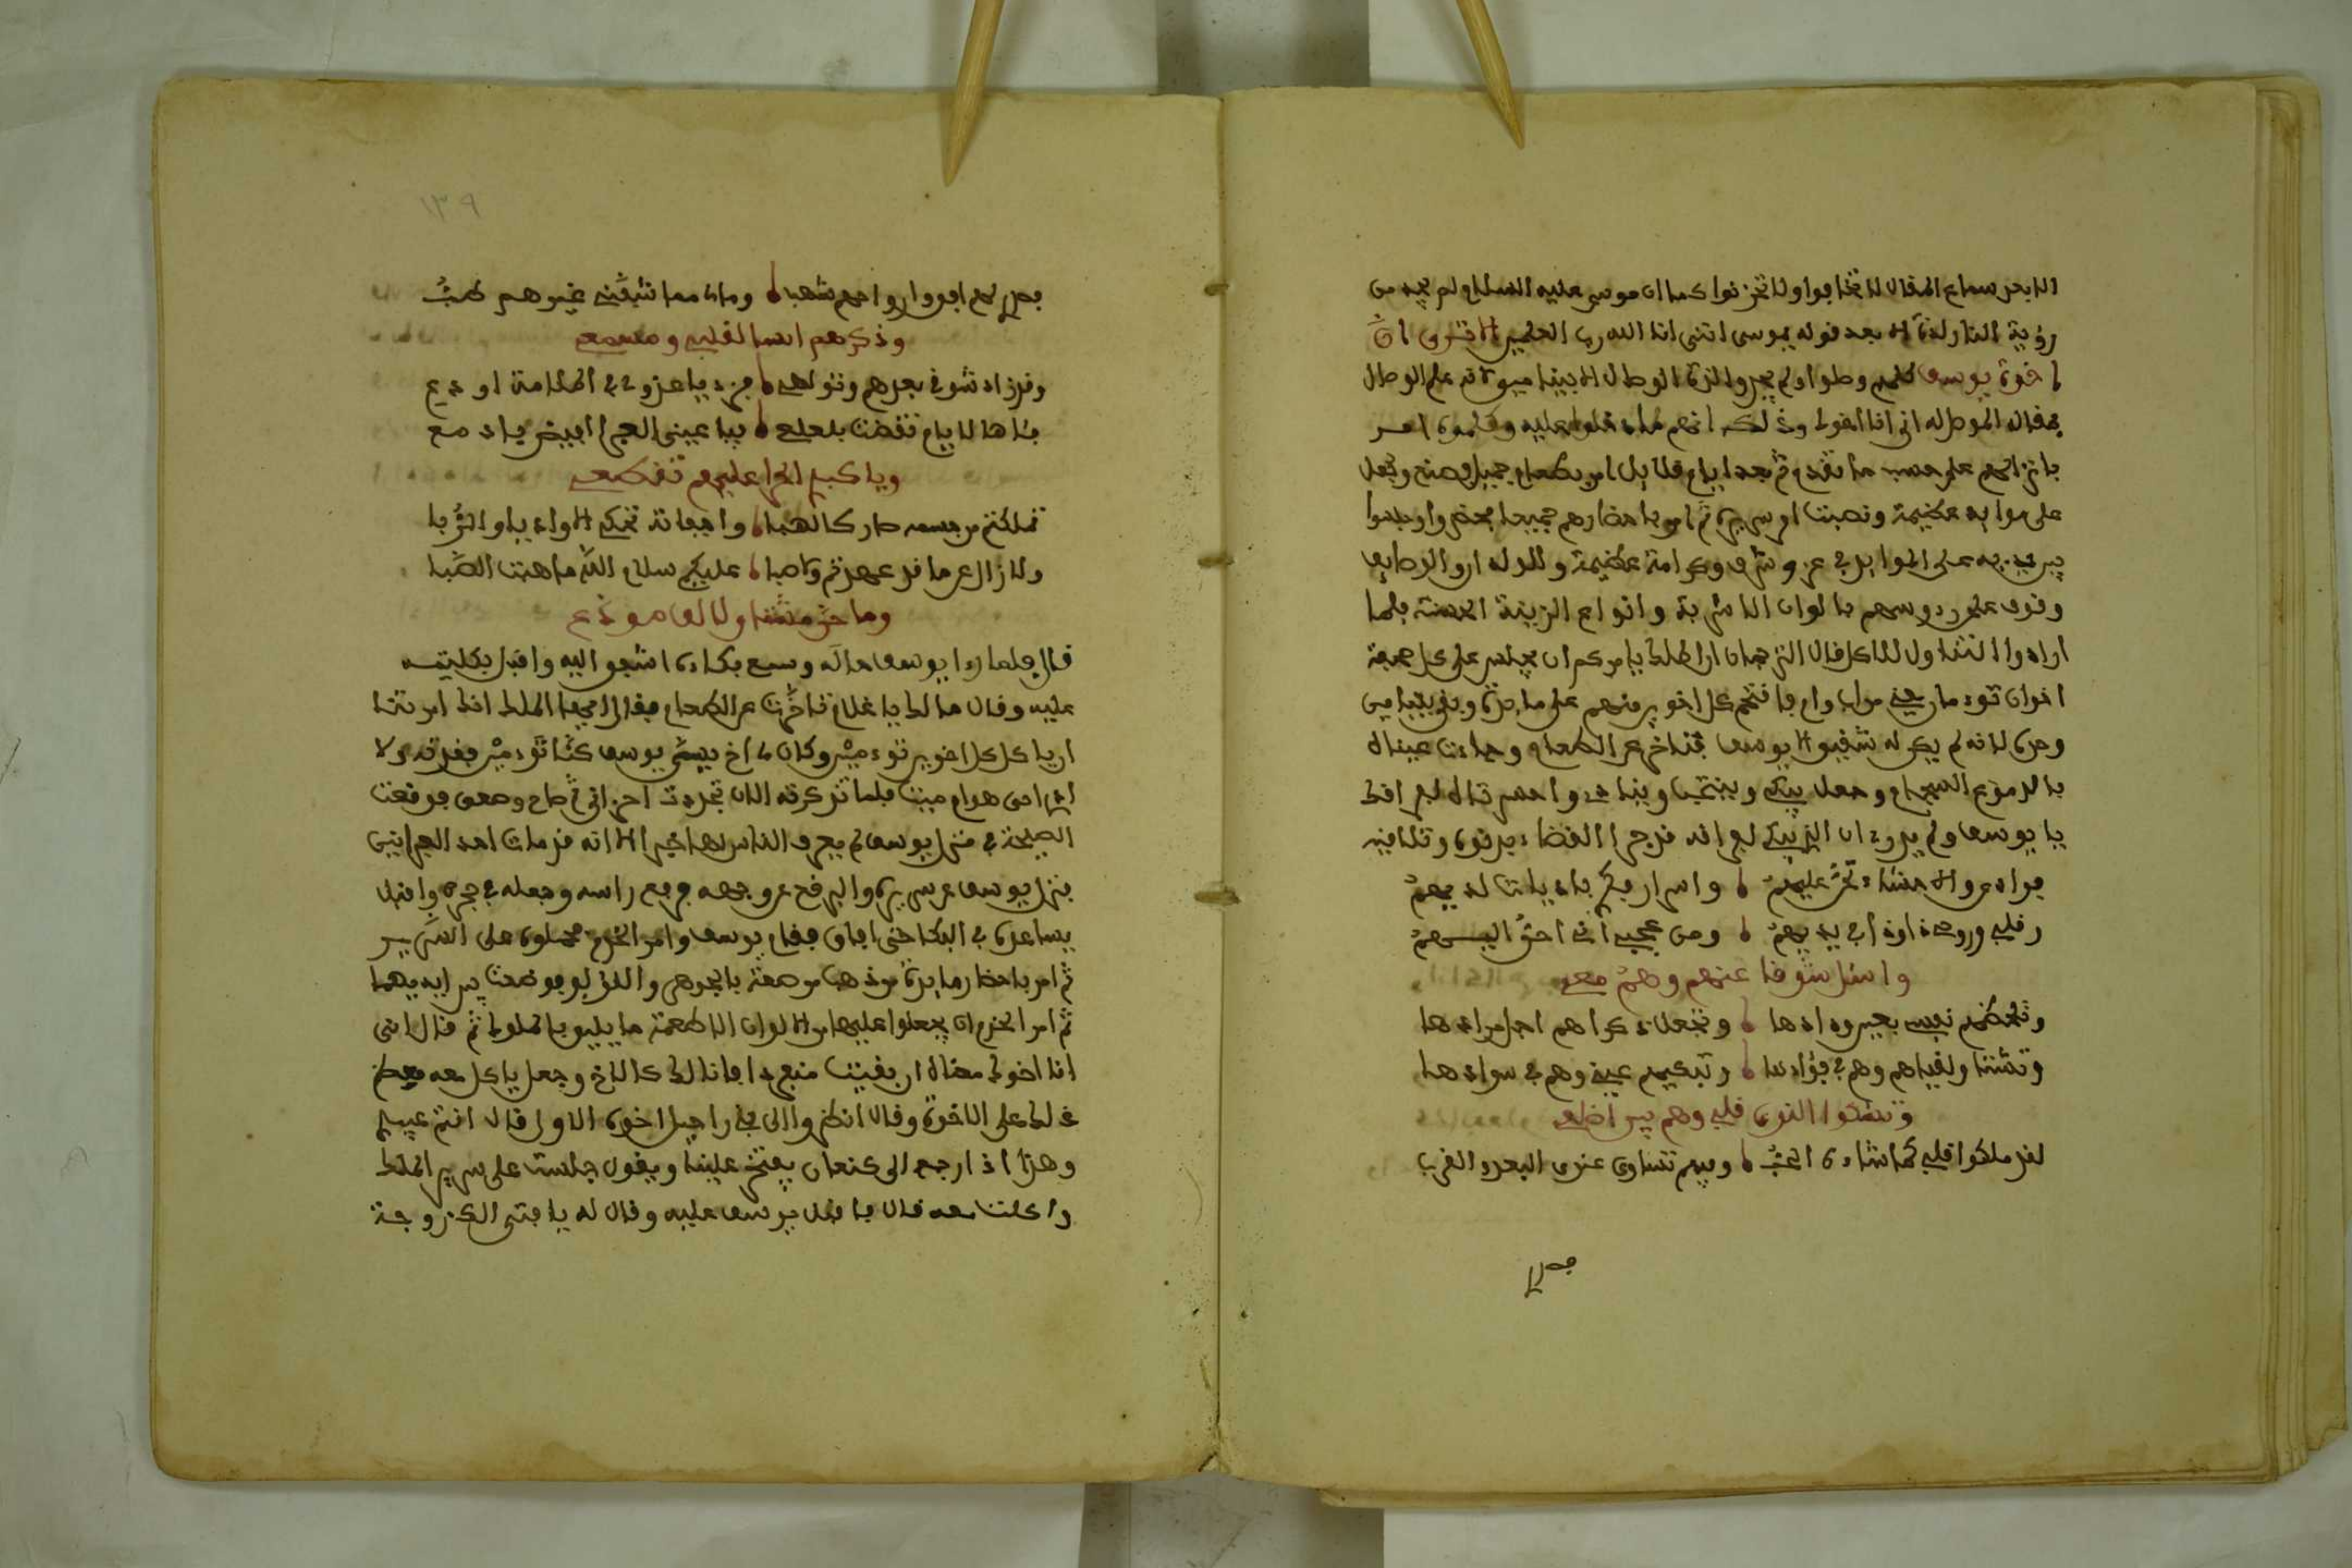 الا بعد سماع المقال لا تخافوا ولا تحزنوا كما ان موسى عليه السلام لم يجد من
رؤية النار لذة الا بعد قوله يموسى انني انا الله رب العلمين الا ترى ان
اخوة يوسف كلهم وصلوا ولم يجدوا لذة الوصال الا بنيامين فانه علم الوصال
فقال الموصل له اني انا اخوك وذلك انهم لما دخلوا عليه وكلموه امر
بانزالهم على حسب ما تقدم ثم بعد ايام قلايل امر بطعام جميل فصنع وجعل
على موايد عظيمة ونصبت اسرته ثم امر باحضارهم جميعا فحضروا وجلسوا
بين يديه على الموايد في عز وشرف وكرامة عظيمة والولدان والوصايف
وقوف على رءوسهم بالوان الاشربة وانواع الزينة الحسنة فلما
ارادوا التناول للاكل قال الترجمان ان الملك يامركم ان يجلس على كل صحفة
اخوان توءمان من اب وام فاجتمع كل اخوين منهم على مايدة وبقي بنيامين
وحده لانه لم يكن له شقيق الا يوسف فتاخر عن الطعام وجاءت عيناه
بالدموع السجام وجعل يبكي وينتحب وينادي واحسرتاه لفراقك
يا يوسف ولم يدر ان الذي يبكي لفراقه قد جرا القضاء بدنوه وتلاقيه
فواد عروا الاحشاء تحر عليهم ٥ واسرار فكر باديات لديهم
وقلبي وروحي اودا في يديهم ٥ ومن عجب اني احن اليهم
واسئل شوقا عنهم وهم معي
وتلحظهم نفسي بعين ودادها ٥ وتجعل ذكراهم اجل مرادها
وتشتاق لقياهم وهم في فؤادها ٥ وتبكيهم عيني وهم في سوادها
وتشكوا النوى قلبي وهم بين اضلعي
لقد ملكوا قلبي كما شاءه الحب ٥ وفيهم تساوى عندي البعد والقرب
فهل
١٣٩
فهل لهم افق ارواحهم شهب ٥ وما معا شقني غيرهم طب
وذكرهم انسا لقلبي ومسمعي
وقد زاد شوقي بعدهم وتولعي ٥ فزد يا عزولي في الملامة او دع
بما هالايام تقضت بلعلع ٥ فيا عيني العبرا افيض يا دمعي
ويا كبدي الحرا عليهم تقطعي
تملكتم من جسمه صار كالهبا ٥ واجفانه تحكم الاوديا والربا
ولا زال عن ما قد عهدتم وما صبا ٥ عليكم سلام الله ما هبت الصبا
وما حن مشتاق ولا لف موذع
قال فلما راا يوسف حاله وسمع بكاءه اشفق اليه واقبل بكليته
عليه وقال ما لك يا غلام تاخرت عن الطعام فقال ايها الملك انك امرتنا
ان ياكل كل اخوين توءمين وكان لي اخ يسمى يوسف كنا توءمين ففقدته ولا
ادري احي هو ام ميت فلما تذكرته الان تجددت احزاني ثم صاح وصعق فوقعت
الصيحة في منزل يوسف ولم يعرف الناس لها خبرا الا انه قد مات احد العبرانيين
فنزل يوسف عن سريره والبرقع عن وجهه ورفع راسه وجعله في حجره واقبل
يساعده في البكا حتى افاق فقام يوسف وامر الخدم فحملوه على السرير
ثم امر باحضار مايدة من ذهب مرصعة بالجوهر واللؤلؤ فوضعت بين ايديهما
ثم امر الخدم ان يجعلوا عليها من الوان الاطعمة ما يليق بالملوك ثم قال انني
انا اخوك مقاله ان بقيت منفردا فانا لك كالاخ وجعل ياكل معه فعظم
ذلك على الاخوة وقال انظروا الى بني راحيل اخوه الاول قال انتم عبيدي
وهذا اذا رجع الى كنعان يفتخر علينا ويقول جلست على سرير الملك
واكلت معه قال فاقبل يوسف عليه وقال له يا فتى الك زوجة